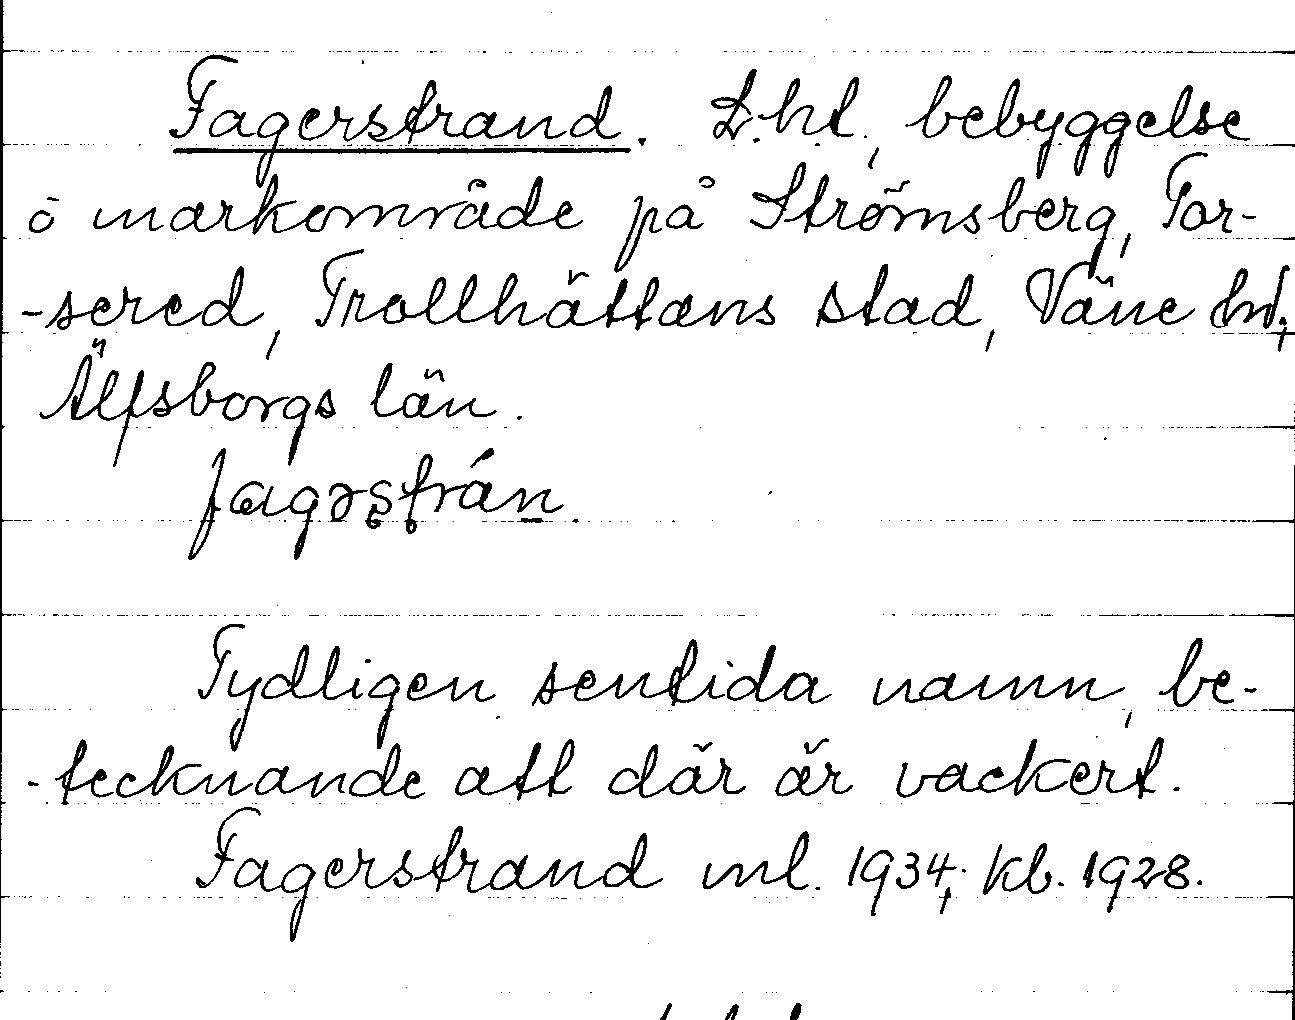 Fagerstrand. L.ht, bebyggelse
o markområde på Strömsberg, Tor-
-sered, Trollhättans stad, Väne hd;
Älfsborgs län.
Tydligen sentida namn, be-
-tecknande att där är vackert.
Fagerstrand ml. 1934; kb. 1928.